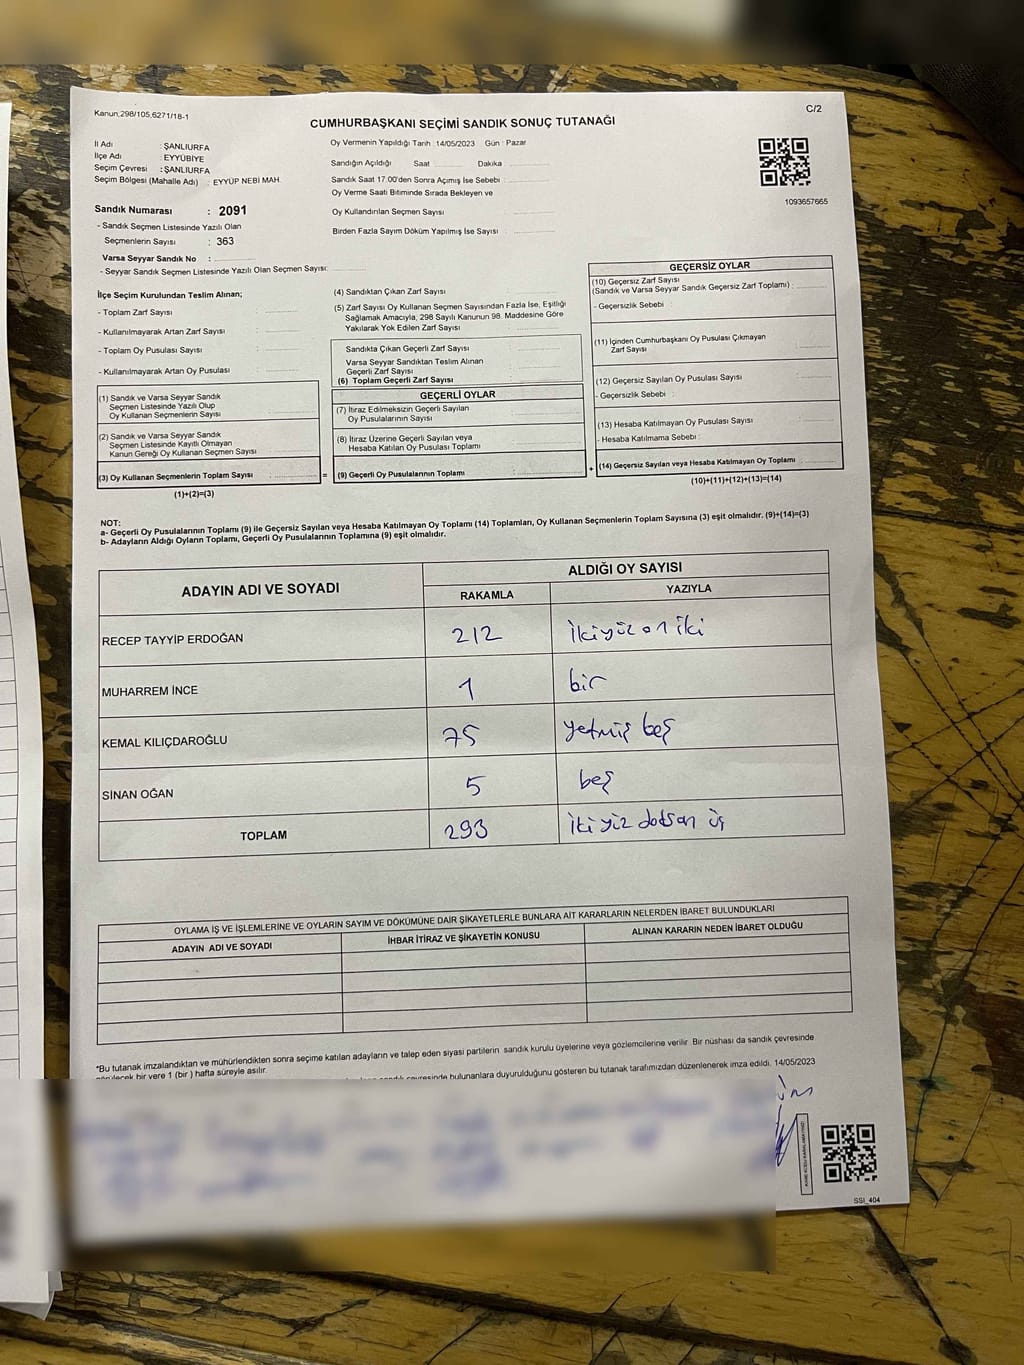 Kanun,298/105,6271/18-1
C/2
CUMHURBAŞKANI SEÇİMİ SANDIK SONUÇ TUTANAĞI
İl Adı : ŞANLIURFA
İlçe Adı : EYYÜBİYE
Seçim Çevresi : ŞANLIURFA
Seçim Bölgesi (Mahalle Adı) : EYYÜP NEBİ MAH.
Oy Vermenin Yapıldığı Tarih : 14/05/2023 Gün : Pazar
Sandığın Açıldığı Saat Dakika :
Sandık Saat 17.00'den Sonra Açımış İse Sebebi :
Oy Verme Saati Bitiminde Sırada Bekleyen ve
Oy Kullandırılan Seçmen Sayısı
Birden Fazla Sayım Döküm Yapılmış İse Sayısı :
1093657665
Sandık Numarası : 2091
- Sandık Seçmen Listesinde Yazılı Olan
Seçmenlerin Sayısı : 363
Varsa Seyyar Sandık No :
- Seyyar Sandık Seçmen Listesinde Yazılı Olan Seçmen Sayısı:
İlçe Seçim Kurulundan Teslim Alınan;
- Toplam Zarf Sayısı :
- Kullanılmayarak Artan Zarf Sayısı :
- Toplam Oy Pusulası Sayısı :
- Kullanılmayarak Artan Oy Pusulası :
(1) Sandık ve Varsa Seyyar Sandık
Seçmen Listesinde Yazılı Olup
Oy Kullanan Seçmenlerin Sayısı :
(2) Sandık ve Varsa Seyyar Sandık
Seçmen Listesinde Kayıtlı Olmayan
Kanun Gereği Oy Kullanan Seçmen Sayısı :
(3) Oy Kullanan Seçmenlerin Toplam Sayısı :
(1)+(2)=(3)
(4) Sandıktan Çıkan Zarf Sayısı :
(5) Zarf Sayısı Oy Kullanan Seçmen Sayısından Fazla İse, Eşitliği
Sağlamak Amacıyla, 298 Sayılı Kanunun 98. Maddesine Göre
Yakılarak Yok Edilen Zarf Sayısı :
Sandıkta Çıkan Geçerli Zarf Sayısı :
Varsa Seyyar Sandıktan Teslim Alınan
Geçerli Zarf Sayısı :
(6) Toplam Geçerli Zarf Sayısı :
GEÇERLİ OYLAR
(7) İtiraz Edilmeksizin Geçerli Sayılan
Oy Pusulalarının Sayısı :
(8) İtiraz Üzerine Geçerli Sayılan veya
Hesaba Katılan Oy Pusulası Toplamı :
= (9) Geçerli Oy Pusulalarının Toplamı :
GEÇERSİZ OYLAR
(10) Geçersiz Zarf Sayısı
(Sandık ve Varsa Seyyar Sandık Geçersiz Zarf Toplamı) :
- Geçersizlik Sebebi :
(11) İçinden Cumhurbaşkanı Oy Pusulası Çıkmayan
Zarf Sayısı :
(12) Geçersiz Sayılan Oy Pusulası Sayısı :
- Geçersizlik Sebebi :
(13) Hesaba Katılmayan Oy Pusulası Sayısı :
- Hesaba Katılmama Sebebi :
+ (14) Geçersiz Sayılan veya Hesaba Katılmayan Oy Toplamı :
(10)+(11)+(12)+(13)=(14)
NOT:
a- Geçerli Oy Pusulalarının Toplamı (9) ile Geçersiz Sayılan veya Hesaba Katılmayan Oy Toplamı (14) Toplamları, Oy Kullanan Seçmenlerin Toplam Sayısına (3) eşit olmalıdır. (9)+(14)=(3)
b- Adayların Aldığı Oyların Toplamı, Geçerli Oy Pusulalarının Toplamına (9) eşit olmalıdır.
ADAYIN ADI VE SOYADI
ALDIĞI OY SAYISI
RAKAMLA YAZIYLA
RECEP TAYYİP ERDOĞAN 212 ikiyüz on iki
MUHARREM İNCE 1 bir
KEMAL KILIÇDAROĞLU 75 yetmiş beş
SİNAN OĞAN 5 beş
TOPLAM 293 iki yüz doksan üç
OYLAMA İŞ VE İŞLEMLERİNE VE OYLARIN SAYIM VE DÖKÜMÜNE DAİR ŞİKAYETLERLE BUNLARA AİT KARARLARIN NELERDEN İBARET BULUNDUKLARI
ADAYIN ADI VE SOYADI İHBAR İTİRAZ VE ŞİKAYETİN KONUSU ALINAN KARARIN NEDEN İBARET OLDUĞU
*Bu tutanak imzalandıktan ve mühürlendikten sonra seçime katılan adayların ve talep eden siyasi partilerin sandık kurulu üyelerine veya gözlemcilerine verilir. Bir nüshası da sandık çevresinde
görülecek bir yere 1 (bir ) hafta süreyle asılır.
çevresinde bulunanlara duyurulduğunu gösteren bu tutanak tarafımızdan düzenlenerek imza edildi. 14/05/2023
SSI_404